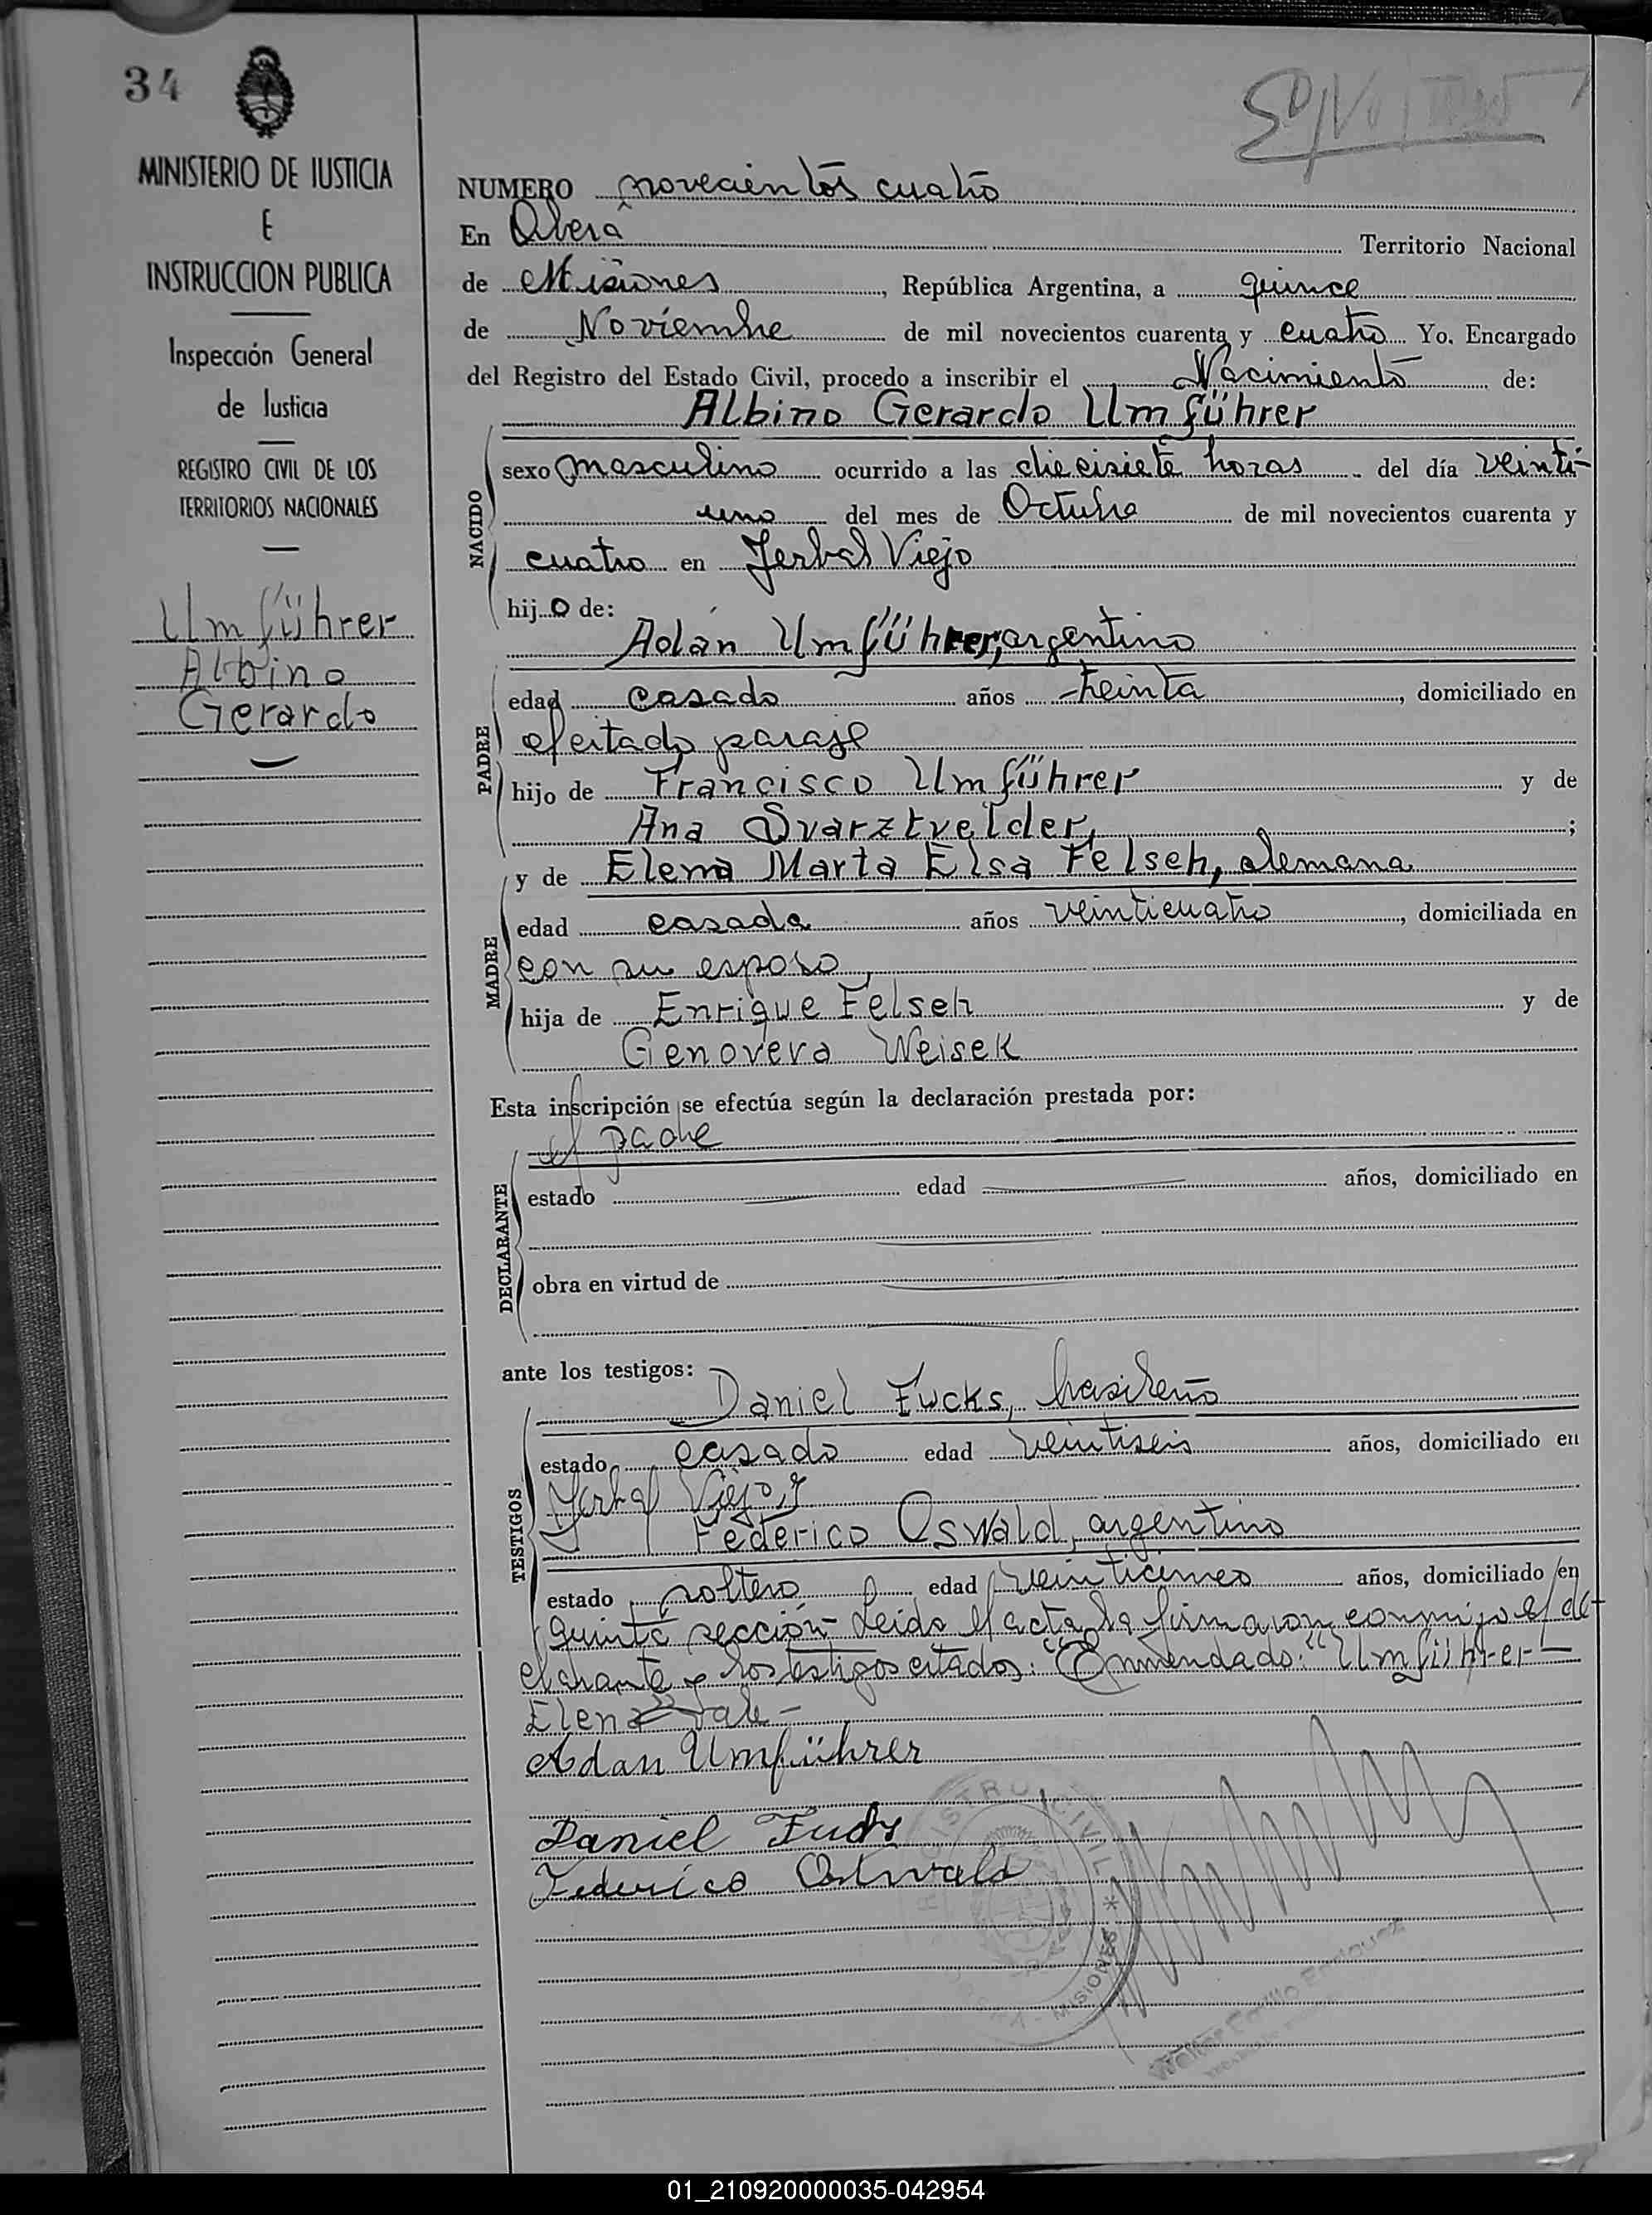 34
MINISTERIO DE JUSTICIA
E
INSTRUCCION PUBLICA
Inspección General
de Justicia
REGISTRO CIVIL DE LOS
TERRITORIOS NACIONALES
Umführer
Albino
Gerardo
NUMERO novecientos cuatro
En Oberá Territorio Nacional
de Misiones, República Argentina, a quince
de Noviembre de mil novecientos cuarenta y cuatro Yo. Encargado
del Registro del Estado Civil, procedo a inscribir el Nacimiento de:
Albino Gerardo Umführer
NACIDO
sexo masculino ocurrido a las diecisiete horas del día veinti-
uno del mes de Octubre de mil novecientos cuarenta y
cuatro en Yerbal Viejo
hijo de:
Adán Umführer, argentino
PADRE
edad casado años treinta, domiciliado en
el citado paraje
hijo de Francisco Umführer y de
Ana Svarztvelder, ;
y de Elena Marta Elsa Felseh, alemana
MADRE
edad casada años veinticuatro, domiciliada en
con su esposo,
hija de Enrique Felseh y de
Genoveva Weisek
Esta inscripción se efectúa según la declaración prestada por:
el padre
DECLARANTE
estado edad años, domiciliado en
obra en virtud de
ante los testigos:
Daniel Fucks, brasileño
TESTIGOS
estado casado edad veintiseis años, domiciliado en
Yerbal Viejo, y
Federico Oswald, argentino
estado soltero edad veinticinco años, domiciliado en
quinta sección- Leida el acta, la firmaron conmigo el de-
clarante y los testigos citados. Enmendado: "Umführer-
Elena" Vale-
Adan Umführer
Daniel Fucks
Federico Oswald
REGISTRO CIVIL
MISIONES
01_210920000035-042954